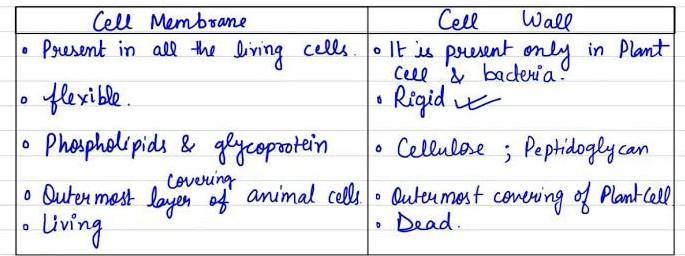 Cell Membrane
Cell Wall
• Present in all the living cells.
• It is present only in Plant
cell & bacteria.
• flexible.
• Rigid
• Phospholipids & glycoprotein
• Cellulose ; Peptidoglycan
covering
• Outermost layer of animal cells.
• Outermost covering of Plant Cell
• Living
• Dead.